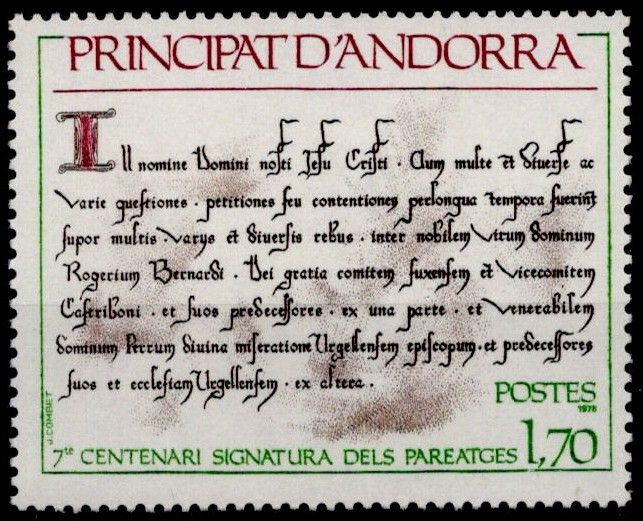 PRINCIPAT D'ANDORRA
In nomine Domini nosti Jesu Cristi · Cum multe et diverse ac
varie questiones · petitiones seu contentiones perlongua tempora fuerint
supor multis · varys et diversis rebus · inter nobilem virum dominum
Rogerium Bernardi · Dei gratia comitem fuxensem et Vicecomitem
Castriboni · et suos predecessores · ex una parte · et Venerabilem
dominum Petrum divina miseratione Urgellensem episcopum · et predecessores
suos et ecclesiam Urgellensem · ex altera ·
POSTES
1978
J. COMBET
7te CENTENARI SIGNATURA DELS PAREATGES 1,70